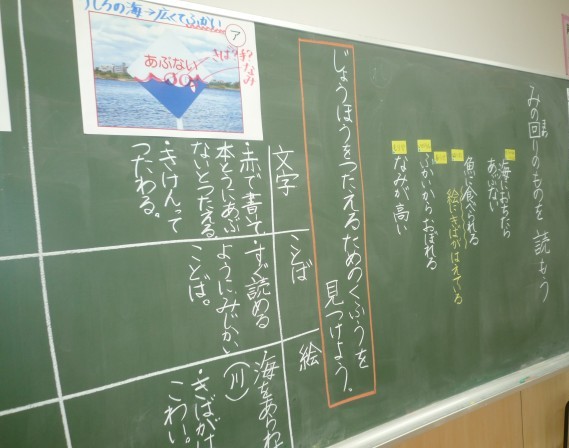 みの回りのものを 読もう
まわ
海におちたら
あぶない
魚に食べられる
絵にきばがはえている
ふかいからおぼれる
なみが高い
じょうほうをつたえるためのくふうを
見つけよう。
文字
・赤で書いて
本とうにあぶ
ないとつたえる
・きけんって
つたわる。
ことば
・すぐ読める
ようにみじかい
ことば。
絵
海をあらわ
(川)
・きばがけ
こわい。
うしろの海→広くてふかい
ア
あぶない
きば?
なみ